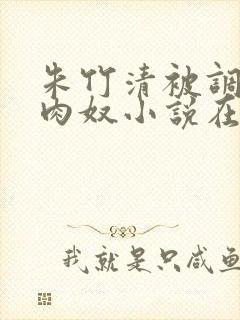 朱竹清被調
肉奴小說在
我就是只咸鱼